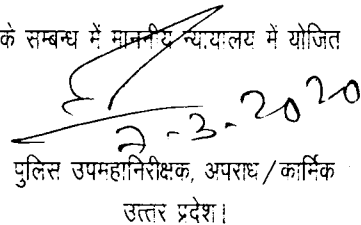 के सम्बन्ध में माननीय न्यायालय में योजित
2-3-2020
पुलिस उपमहानिरीक्षक, अपराध / कार्मिक
उत्तर प्रदेश।